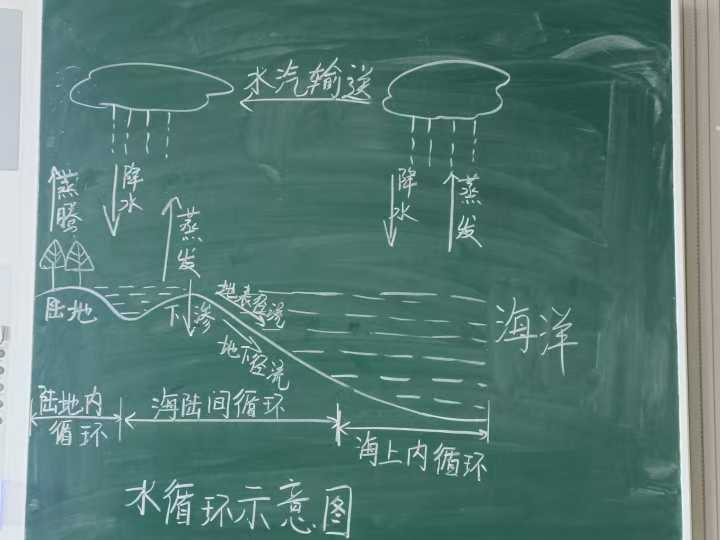 水汽输送
降水
蒸腾
蒸发
降水
蒸发
陆地
下渗
地表径流
地下径流
海洋
陆地内
循环
海陆间循环
海上内循环
水循环示意图